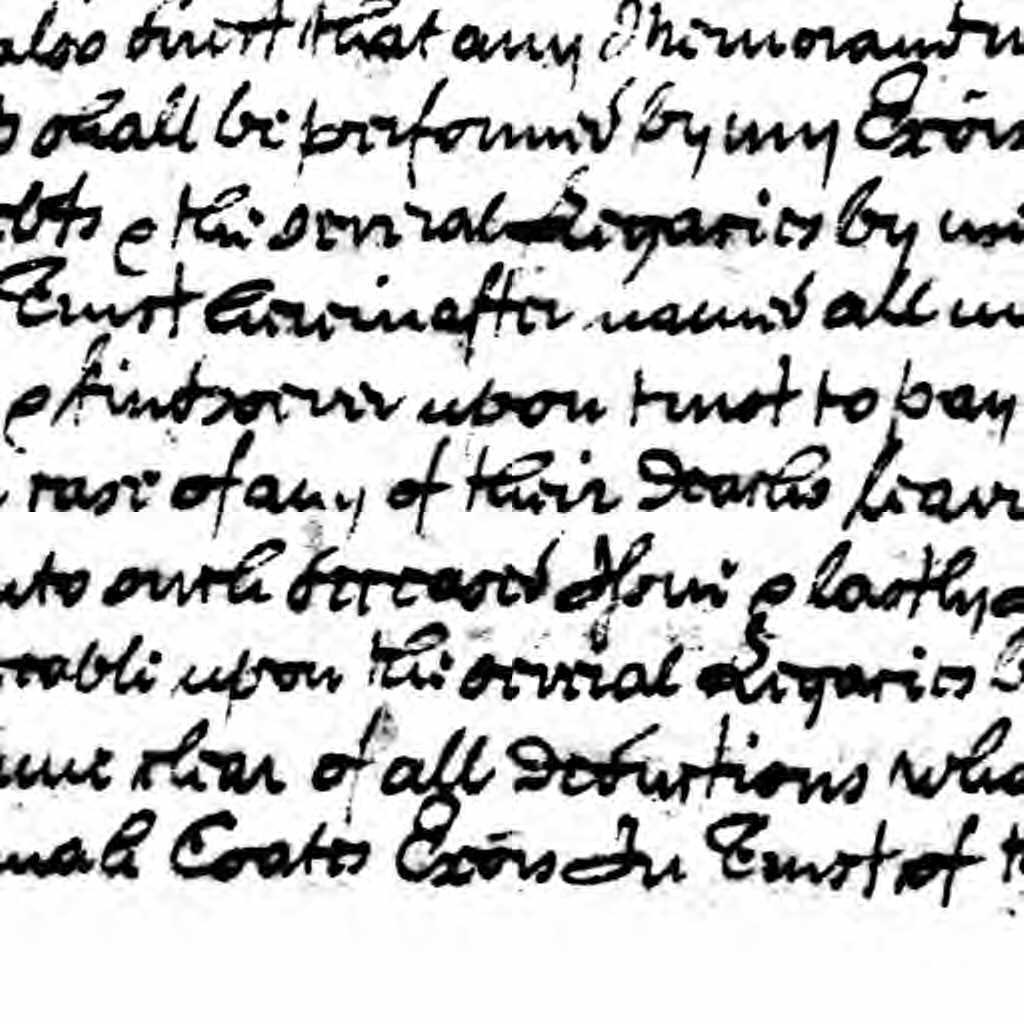 also direct that any Memorandu
shall be performed by my Exōrs
ebts & the several Legacies by me
Trust hereinafter named all m
& kindsoever upon trust to pay
case of any of their Deaths leavi
into such deceased Issue & lastly
ceable upon the several Legacies
same clear of all Deductions wha
nnah Coates Exōrs In Trust of t